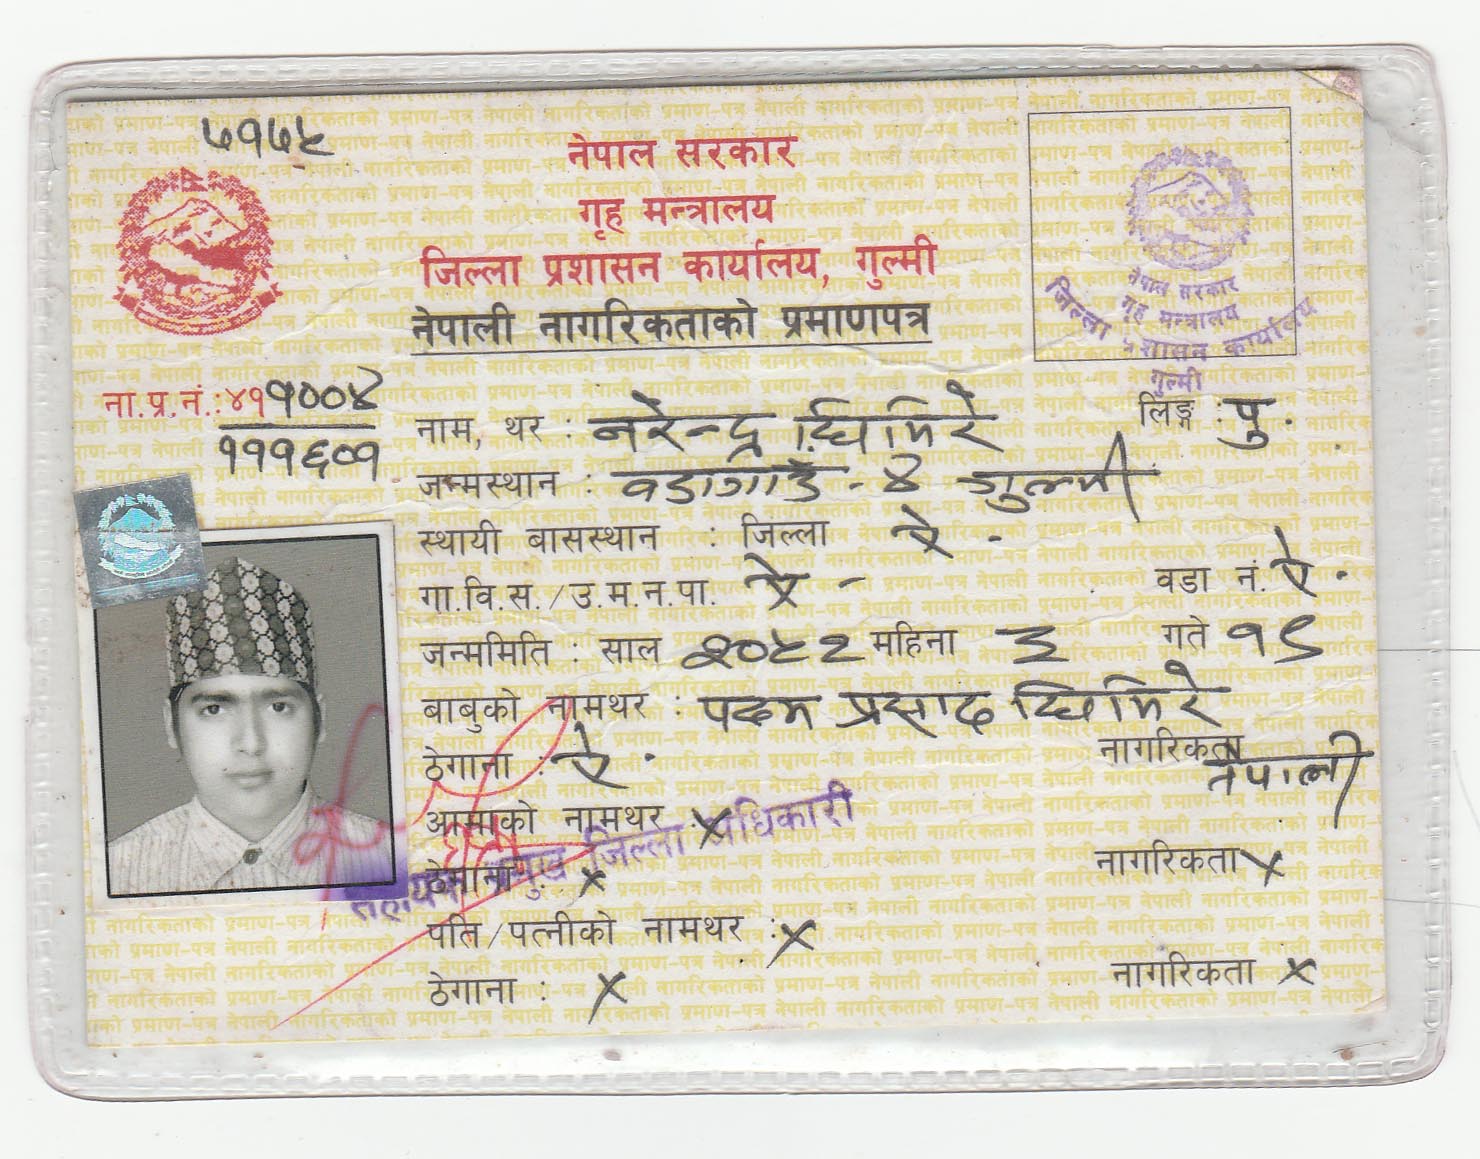 ५१७५
नेपाल सरकार
गृह मन्त्रालय
जिल्ला प्रशासन कार्यालय, गुल्मी
नेपाली नागरिकताको प्रमाणपत्र
नेपाल सरकार
गृह मन्त्रालय
जिल्ला प्रशासन कार्यालय
गुल्मी
ना.प्र.नं.:४११००४
१११६०१
नाम, थर : नरेन्द्र घिमिरे लिङ्ग : पु.
जन्मस्थान : वडागाउँ - ४ गुल्मी
स्थायी बासस्थान : जिल्ला ऐ -
गा.वि.स./उ.म.न.पा. ऐ - वडा नं. ऐ -
जन्ममिति : साल २०५२ महिना ३ गते १९
बाबुको नामथर : पदम प्रसाद घिमिरे
ठेगाना : ऐ. नागरिकता नेपाली
आमाको नामथर : x
ठेगाना : x नागरिकता x
सहायक प्रमुख जिल्ला अधिकारी
पति/पत्नीको नामथर : x
ठेगाना : x नागरिकता x